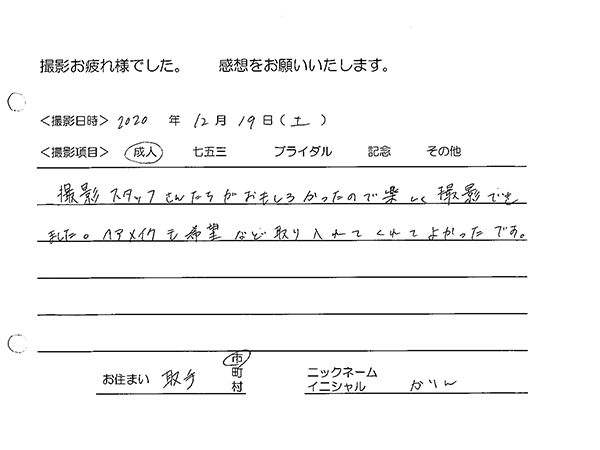 撮影お疲れ様でした。 感想をお願いいたします。
＜撮影日時＞ 2020 年 12月 19日(土)
＜撮影項目＞ 成人 七五三 ブライダル 記念 その他
撮影スタッフさんたちがおもしろかったので楽しく撮影でき
ました。ヘアメイクも希望など取り入れてくれてよかったです。
お住まい 取手 市
町
村
ニックネーム
イニシャル かりん